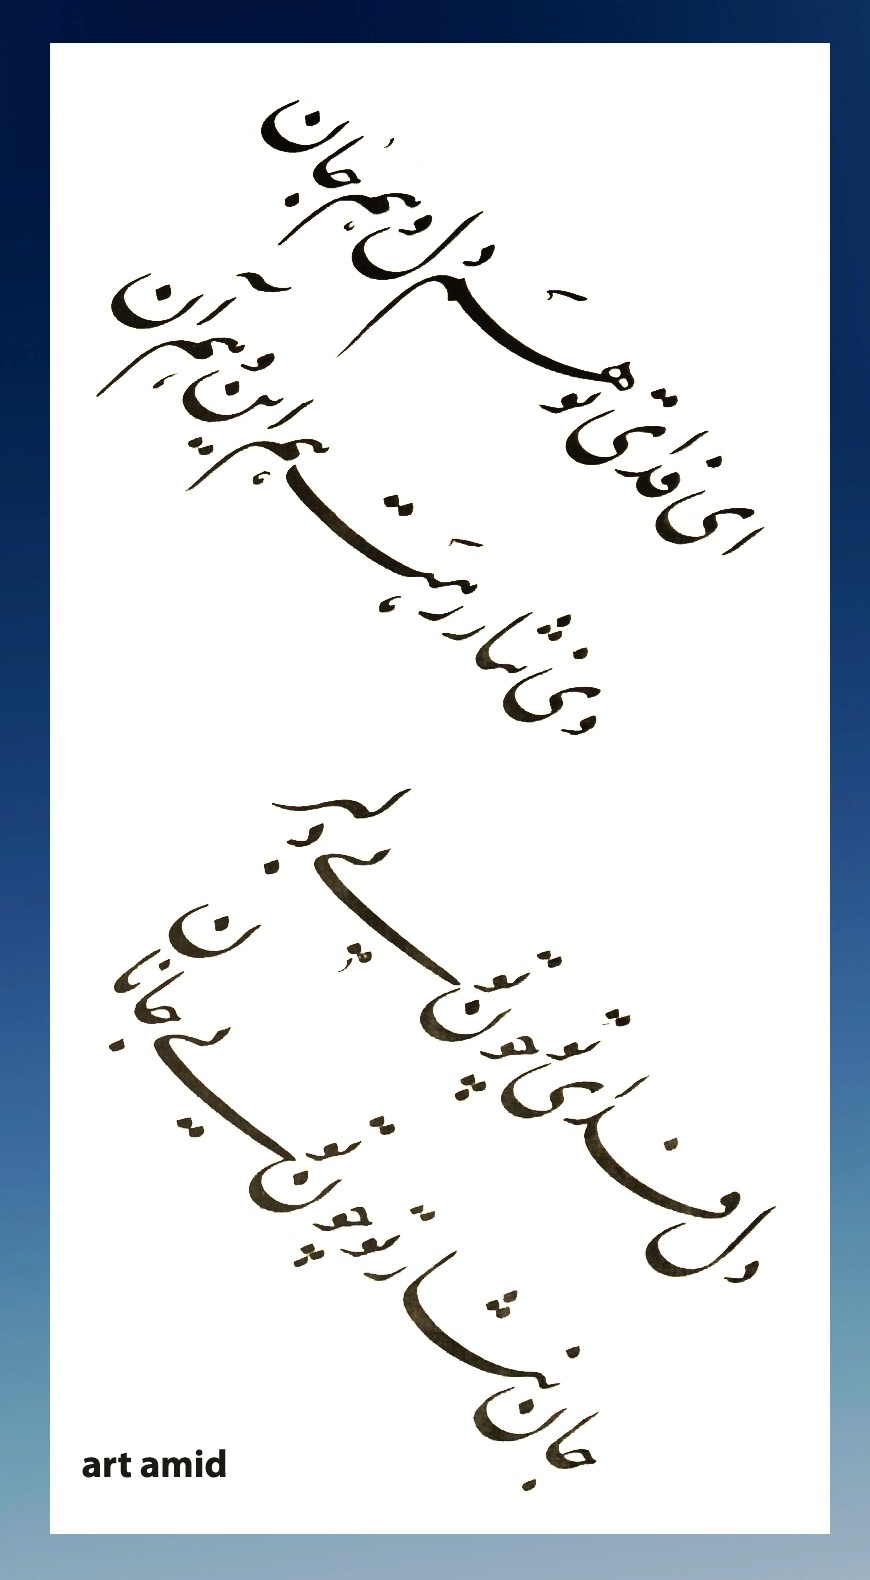 ای فدای تو هم دل و هم جان
وی نثار رهت هم این و هم آن
دل فدای تو چون تویی دلبر
جان نثار تو چون تویی جانان
art amid